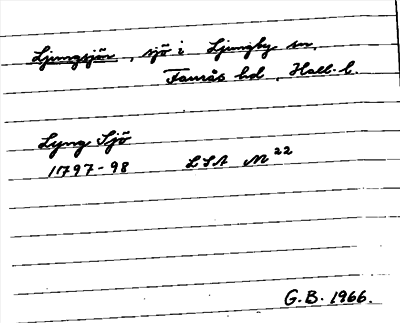 Ljungsjön, sjö i Ljungby sn,
Faurås hd, Hall. l.
Lyng Sjö
1797-98 LSA N 22
G.B. 1966.